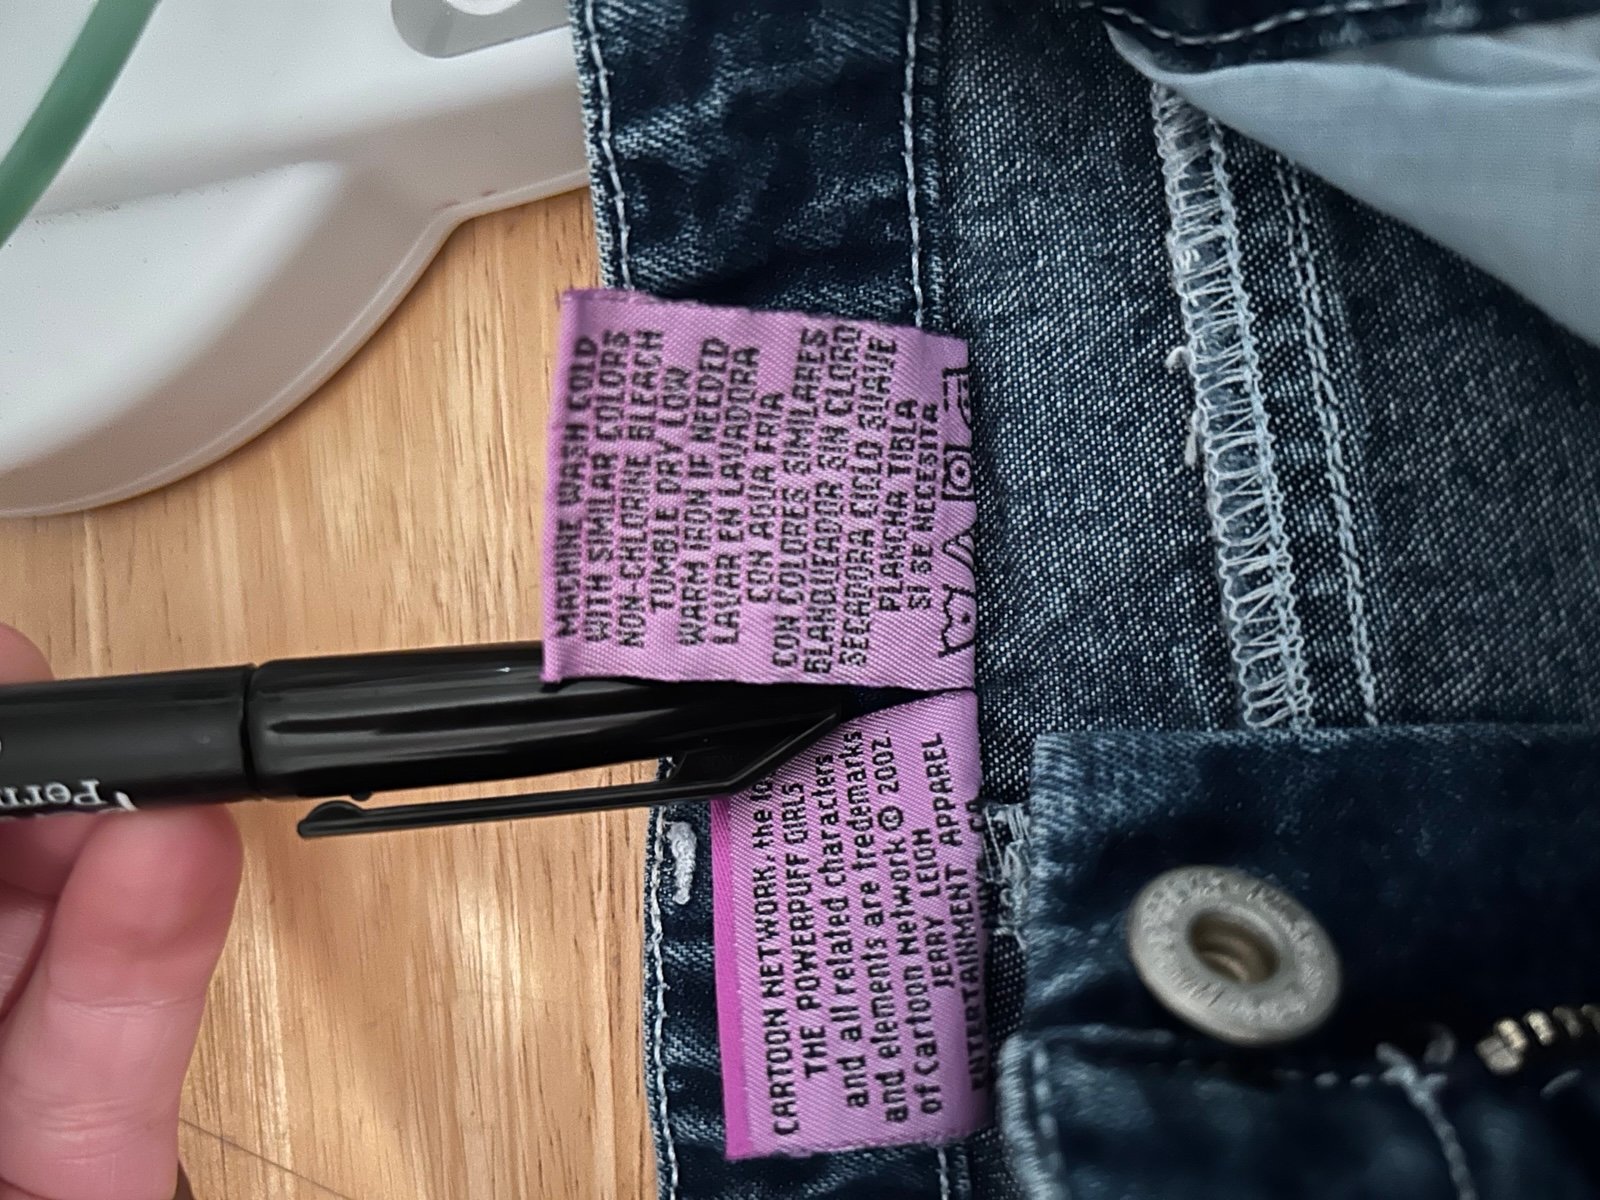 MACHINE WASH COLD
WITH SIMILAR COLORS
NON-CHLORINE BLEACH
TUMBLE DRY LOW
WARM IRON IF NEEDED
LAVAR EN LAVADORA
CON AGUA FRIA
CON COLORES SIMILARES
BLANQUEADOR SIN CLORO
SECADORA CICLO SUAVE
PLANCHA TIBIA
SI SE NECESITA
CARTOON NETWORK, the
THE POWERPUFF GIRLS
and all related characters
and elements are tredemarks
of Cartoon Network © 2002.
JERRY LEIGH
ENTERTAINMENT APPAREL